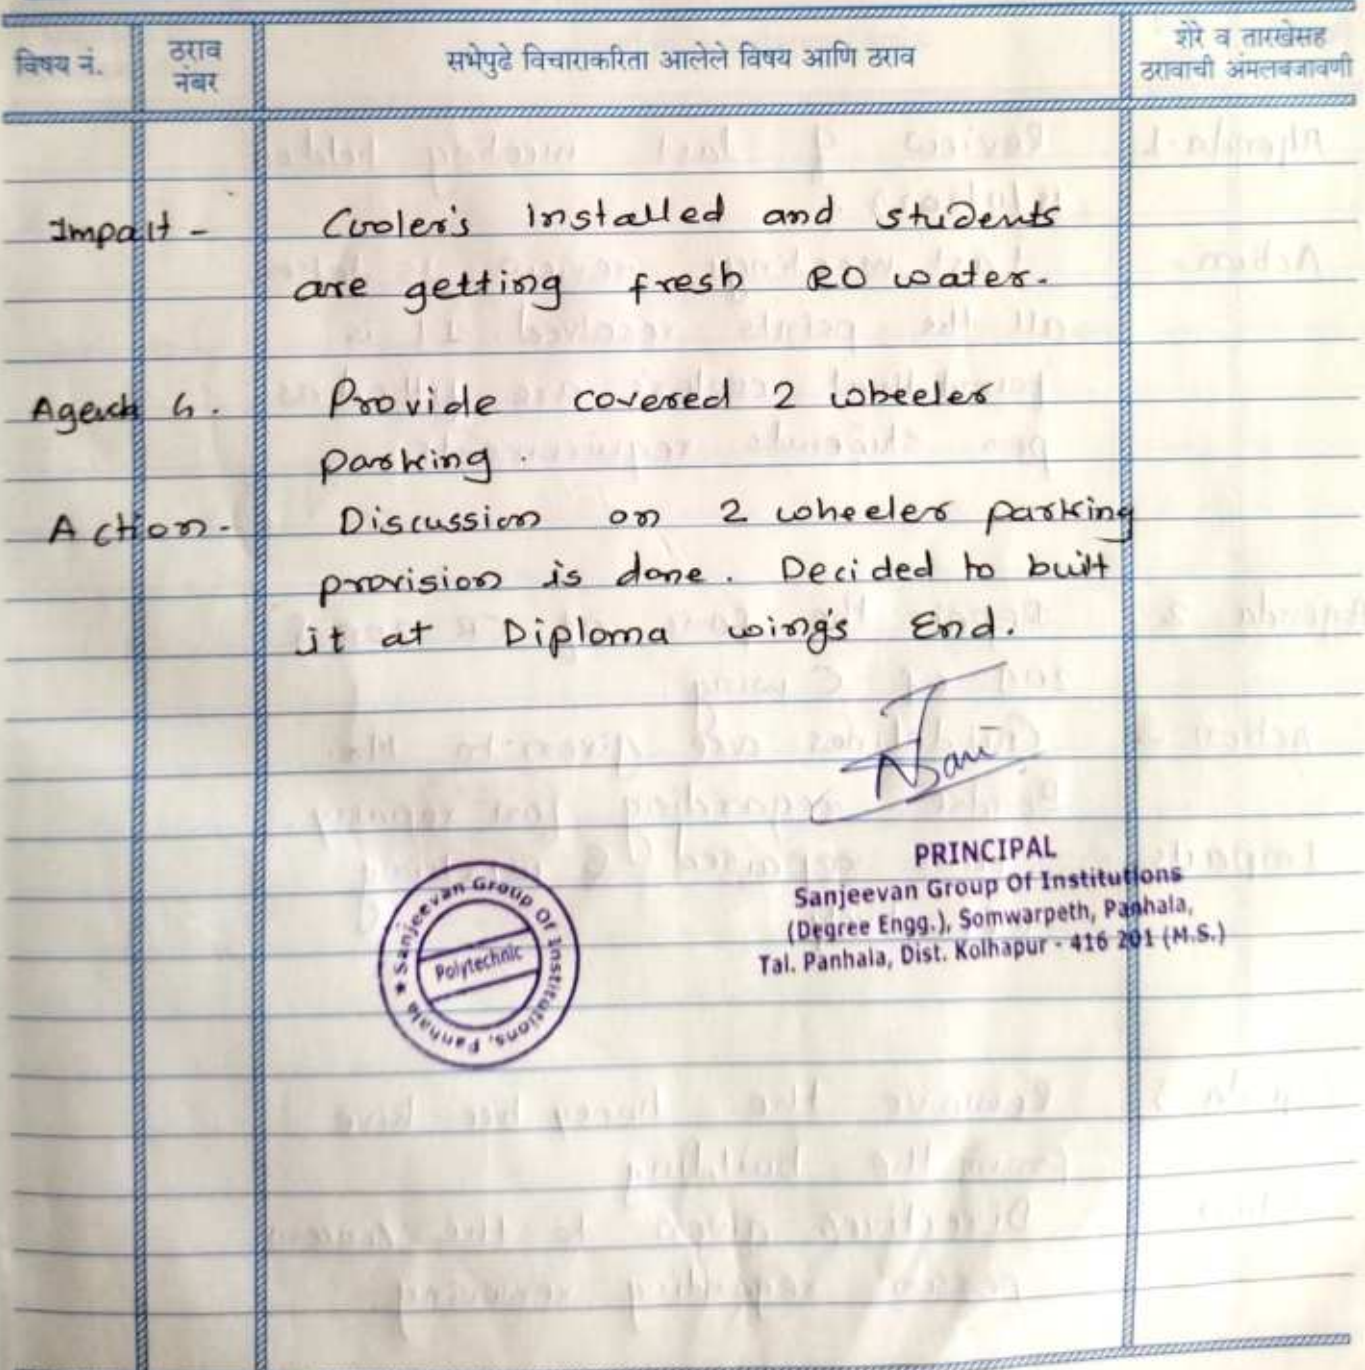 विषय नं.
ठराव
नंबर
सभेपुढे विचाराकरिता आलेले विषय आणि ठराव
शेरे व तारखेसह
ठरावाची अंमलबजावणी
Impact - Cooler's Installed and students
are getting fresh RO water.
Provide covered 2 wheeler
parking.
Action - Discussion on 2 wheeler parking
provision is done. Decided to built
it at Diploma wing's End.
PRINCIPAL
Sanjeevan Group Of Institutions
(Degree Engg.), Somwarpeth, Panhala,
Tal. Panhala, Dist. Kolhapur - 416 201 (M.S.)
★ Sanjeevan Group Of Institutions, Panhala
Polytechnic